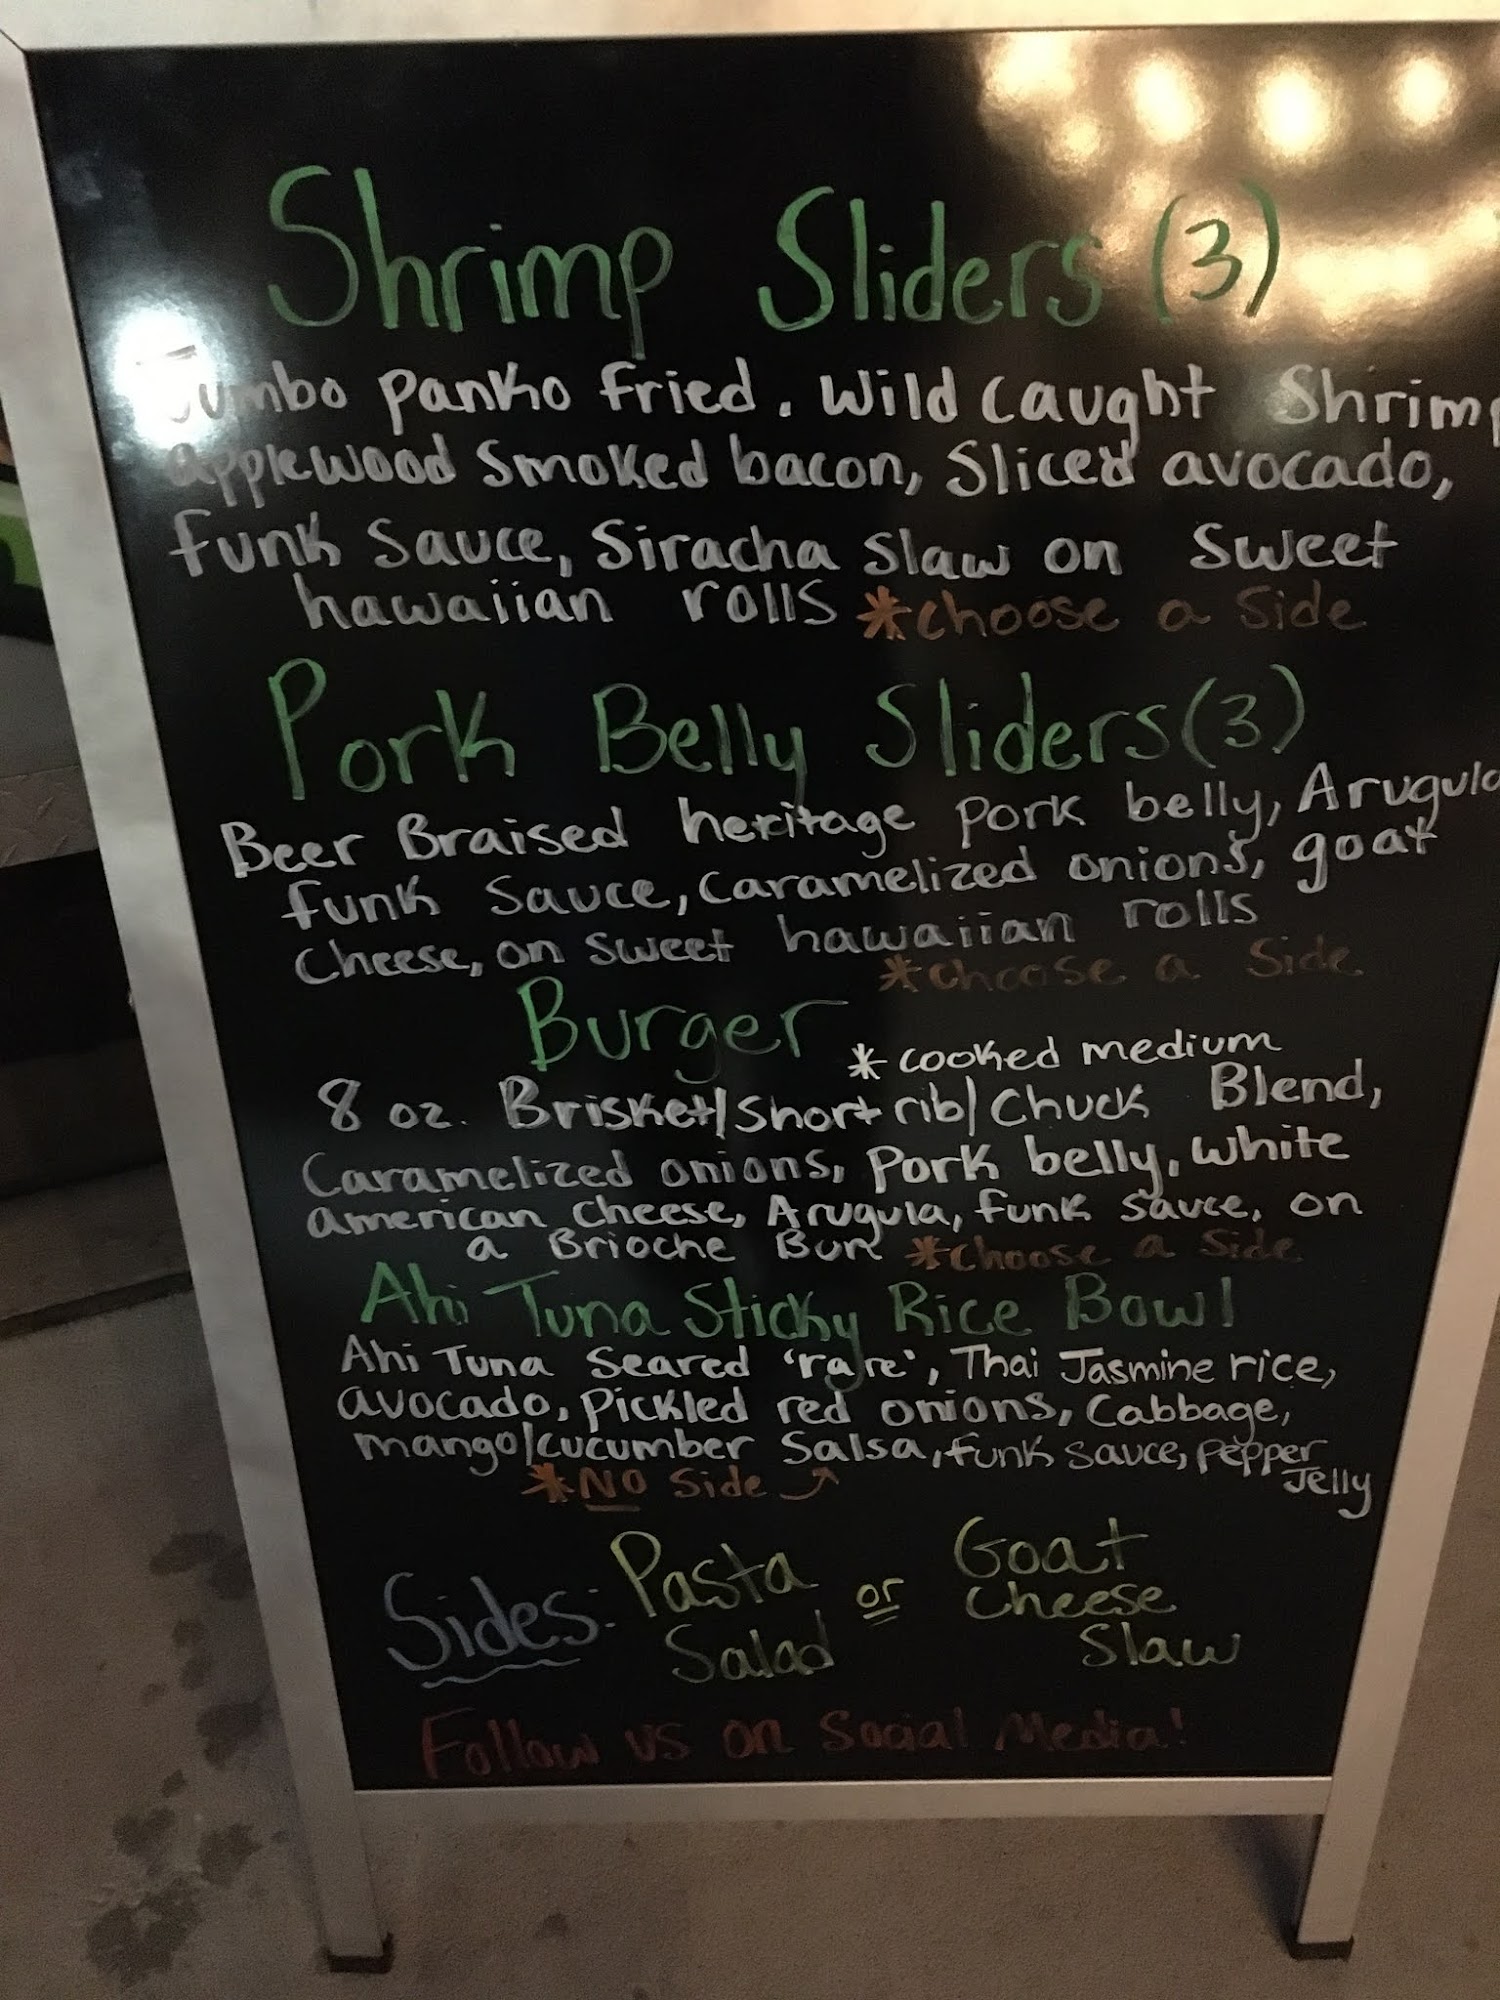 Shrimp Sliders (3)
Jumbo panko fried. wild caught Shrimp
applewood Smoked bacon, Sliced avocado,
funk Sauce, Siracha Slaw on Sweet
hawaiian rolls *choose a Side
Pork Belly Sliders (3)
Beer Braised heritage pork belly, Arugula
funk Sauce, Caramelized onions, goat
Cheese, on sweet hawaiian rolls
*choose a Side
Burger *cooked medium
8 oz. Brisket/Short rib/Chuck Blend,
Caramelized onions, pork belly, white
american cheese, Arugula, funk sauce, on
a Brioche Bun *choose a Side
Ahi Tuna Sticky Rice Bowl
Ahi Tuna Seared 'rare', Thai Jasmine rice,
avocado, pickled red onions, Cabbage,
mango/cucumber Salsa, funk sauce, pepper
Jelly
*NO Side
Sides: Pasta Salad or Goat Cheese Slaw
Follow us on Social Media!